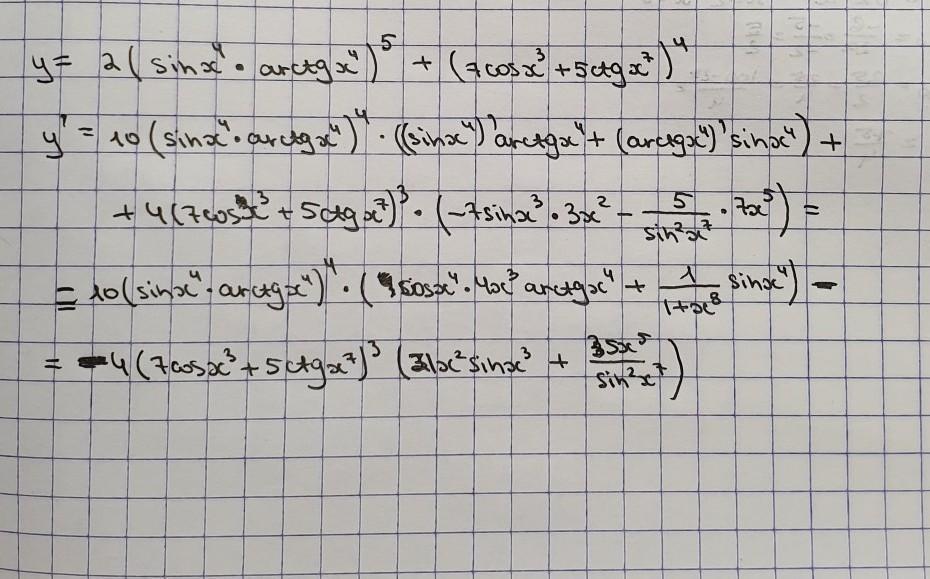 y = 2(sinx⁴ · arctgx⁴)⁵ + (7cosx³ + 5ctgx⁷)⁴
y' = 10(sinx⁴ · arctgx⁴)⁴ · ((sinx⁴)' arctgx⁴ + (arctgx⁴)' sinx⁴) +
+ 4(7cosx³ + 5ctgx⁷)³ · (-7sinx³ · 3x² - 5/sin²x⁷ · 7x⁵) =
= 10(sinx⁴ · arctgx⁴)⁴ · (cosx⁴ · 4x³ arctgx⁴ + 1/1+x⁸ sinx⁴) -
= -4(7cosx³ + 5ctgx⁷)³ (21x² sinx³ + 35x⁵/sin²x⁷)